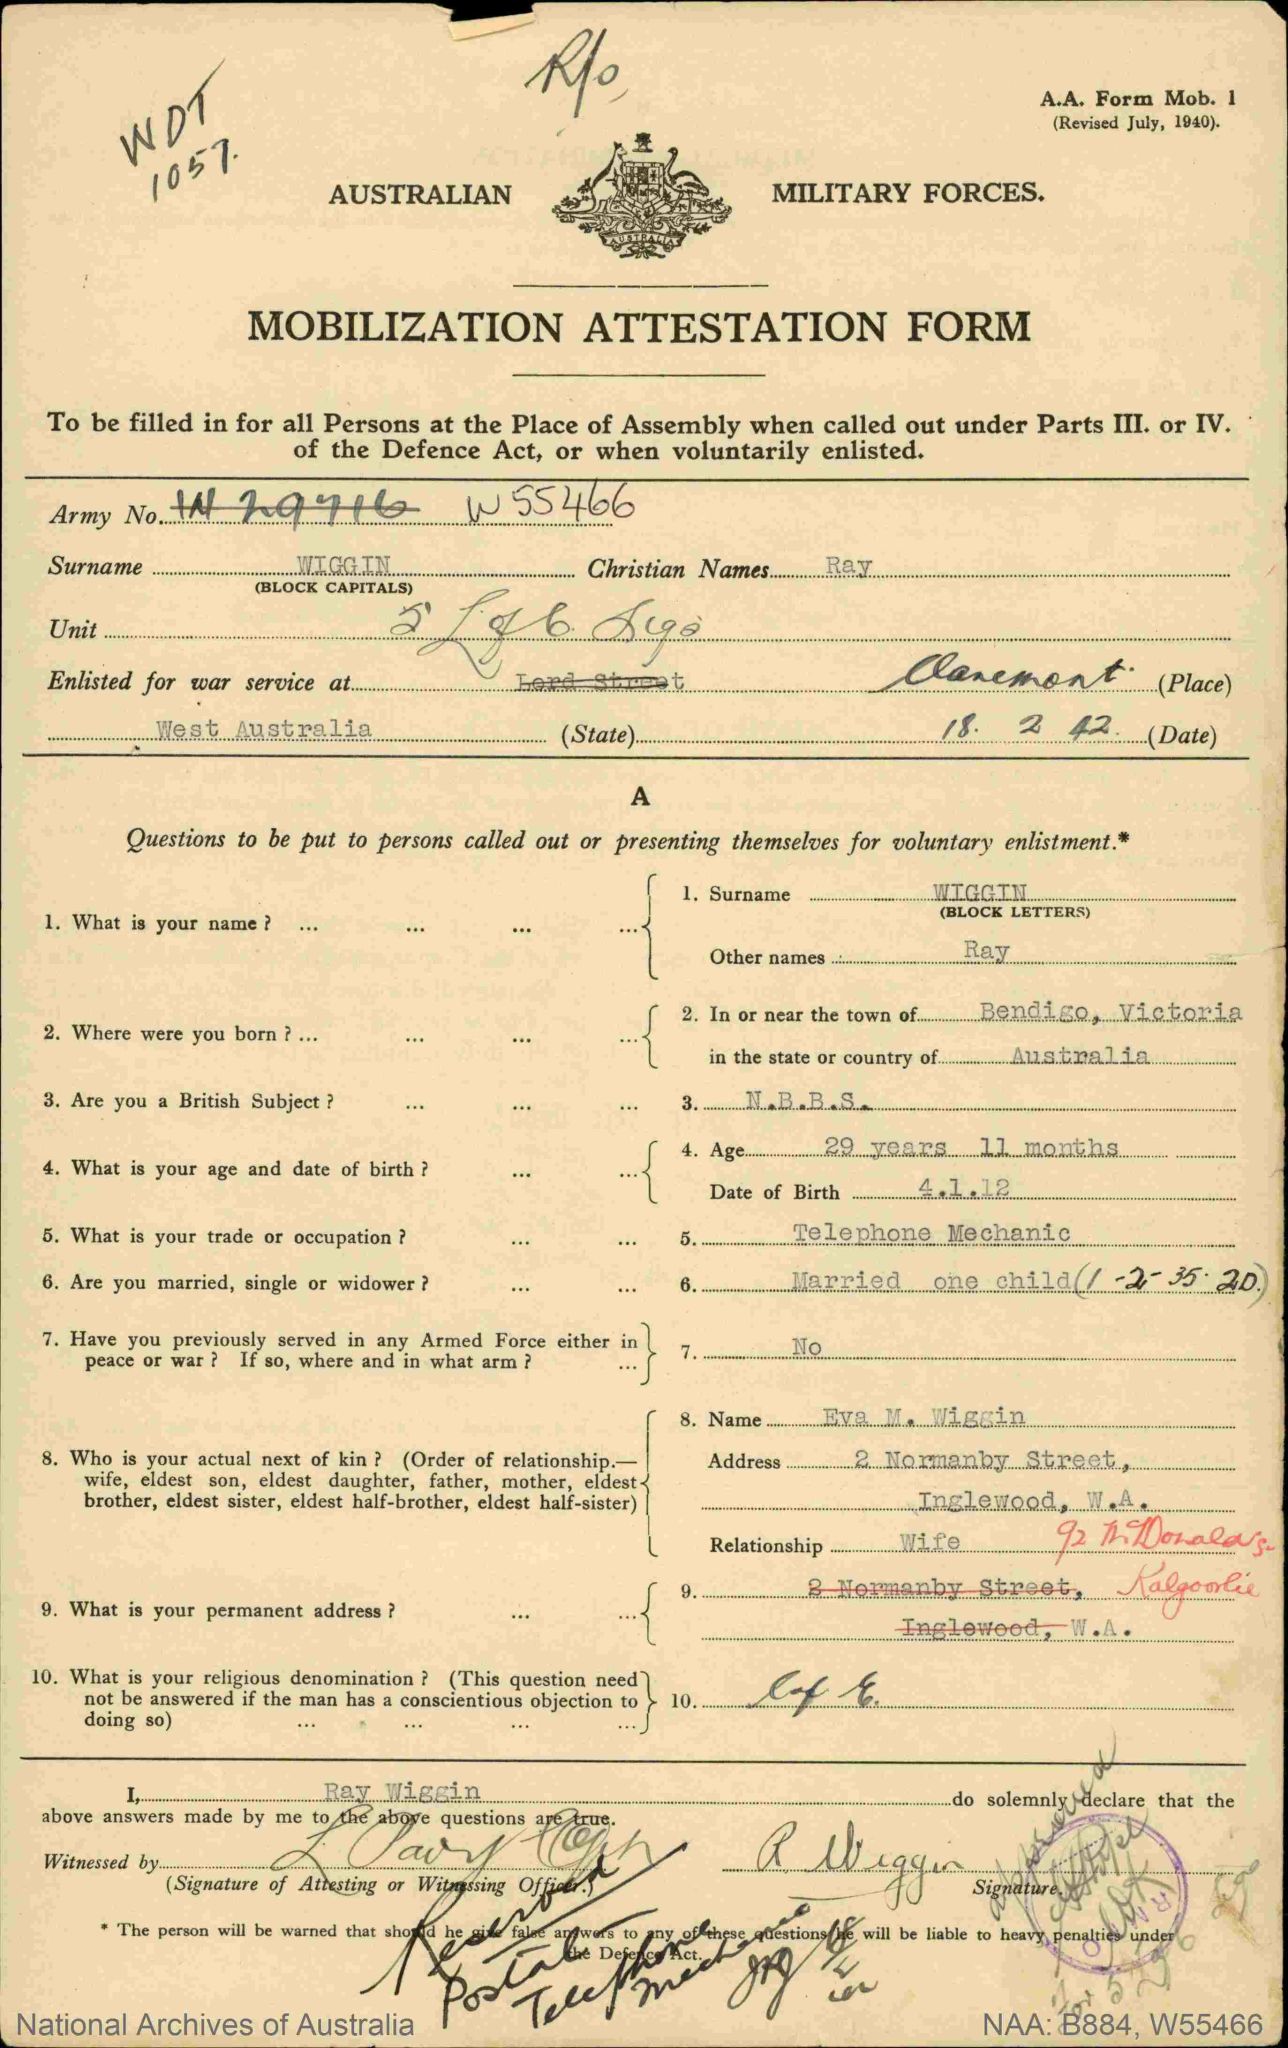 R/o
WDT
1057.
A.A. Form Mob. 1
(Revised July, 1940).
AUSTRALIAN MILITARY FORCES.
AUSTRALIA
MOBILIZATION ATTESTATION FORM
To be filled in for all Persons at the Place of Assembly when called out under Parts III. or IV.
of the Defence Act, or when voluntarily enlisted.
Army No. W 29716 W 55466
Surname WIGGIN Christian Names Ray
(BLOCK CAPITALS)
Unit 5 L of C Sigs
Enlisted for war service at Lord Street Claremont (Place)
West Australia (State) 18. 2 42. (Date)
A
Questions to be put to persons called out or presenting themselves for voluntary enlistment.*
1. What is your name? ... ... ... ... 1. Surname WIGGIN
(BLOCK LETTERS)
Other names Ray
2. Where were you born? ... ... ... ... 2. In or near the town of Bendigo, Victoria
in the state or country of Australia
3. Are you a British Subject? ... ... ... 3. N.B.B.S.
4. What is your age and date of birth? ... ... 4. Age 29 years 11 months
Date of Birth 4.1.12
5. What is your trade or occupation? ... ... 5. Telephone Mechanic
6. Are you married, single or widower? ... ... 6. Married one child (1-2-35. 2D.)
7. Have you previously served in any Armed Force either in
peace or war? If so, where and in what arm? ... 7. No
8. Who is your actual next of kin? (Order of relationship.—
wife, eldest son, eldest daughter, father, mother, eldest
brother, eldest sister, eldest half-brother, eldest half-sister)
8. Name Eva M. Wiggin
Address 2 Normanby Street,
Inglewood, W.A.
Relationship Wife 92 McDonald St
9. What is your permanent address? ... ... 9. 2 Normanby Street, Kalgoorlie
Inglewood, W.A.
10. What is your religious denomination? (This question need
not be answered if the man has a conscientious objection to
doing so) ... ... ... ... 10. C of E.
I, Ray Wiggin do solemnly declare that the
above answers made by me to the above questions are true.
Witnessed by
(Signature of Attesting or Witnessing Officer.)
R Wiggin
Signature.
* The person will be warned that should he give false answers to any of these questions he will be liable to heavy penalties under
the Defence Act.
Reserved
Postal
Telephone
Mechanic
National Archives of Australia
NAA: B884, W55466